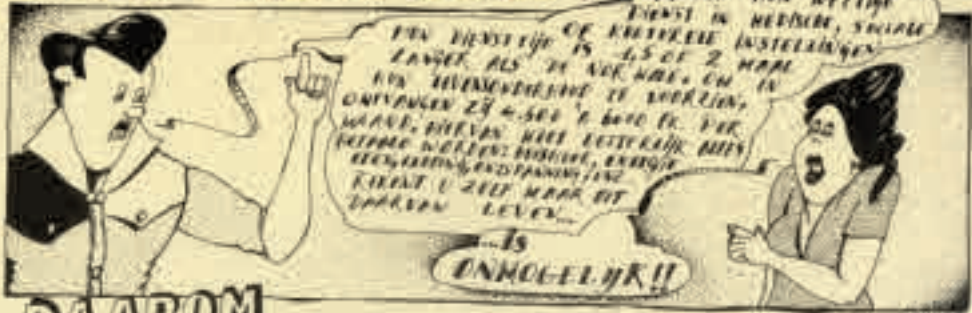 DIENST IN MEDISCHE, SOCIALE
OF KULTURELE INSTELLINGEN
HUN DIENSTTIJD IS 1,5 OF 2 MAAL
LANGER ALS DE NORMALE. OM IN
HUN LEVENSONDERHOUD TE VOORZIEN,
ONTVANGEN ZIJ 4.500 à 6000 FR PER
MAAND. HIERVAN MOET LETTERLIJK ALLES
BETAALD WORDEN: HUISHUUR, ENERGIE
KLEDING, ONTSPANNING, ENZ
REKENT U ZELF MAAR UIT
DAARVAN LEVEN...
...IS
ONMOGELIJK!!
DAAROM